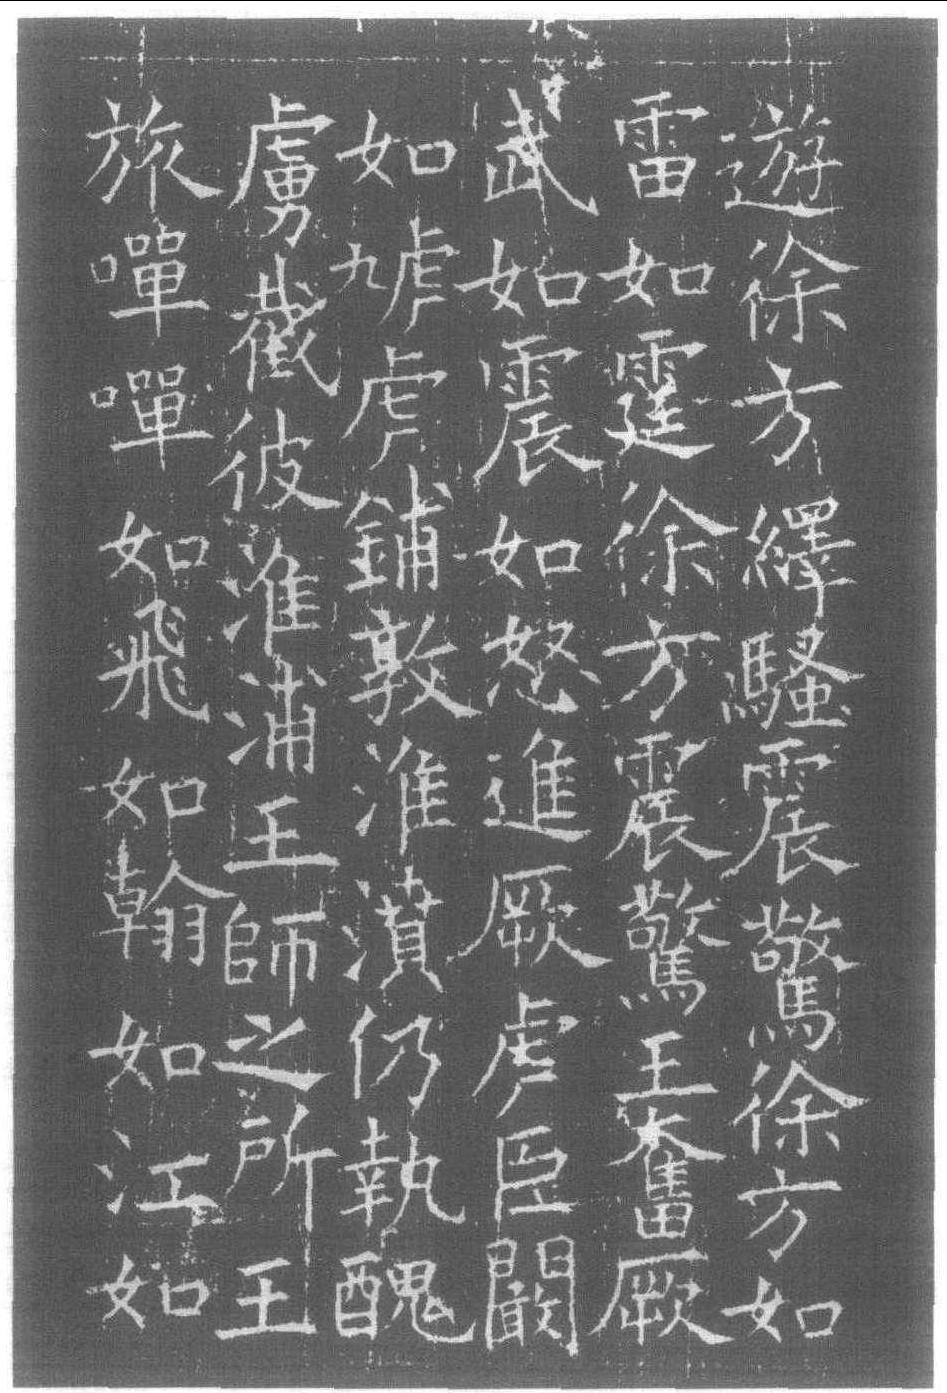 遊徐方繹騷震驚徐方如
雷如霆徐方震驚王奮厥
武如震如怒進厥虎臣闞
如虓虎鋪敦淮濆仍執醜
虜截彼淮浦王師之所王
旅嘽嘽如飛如翰如江如